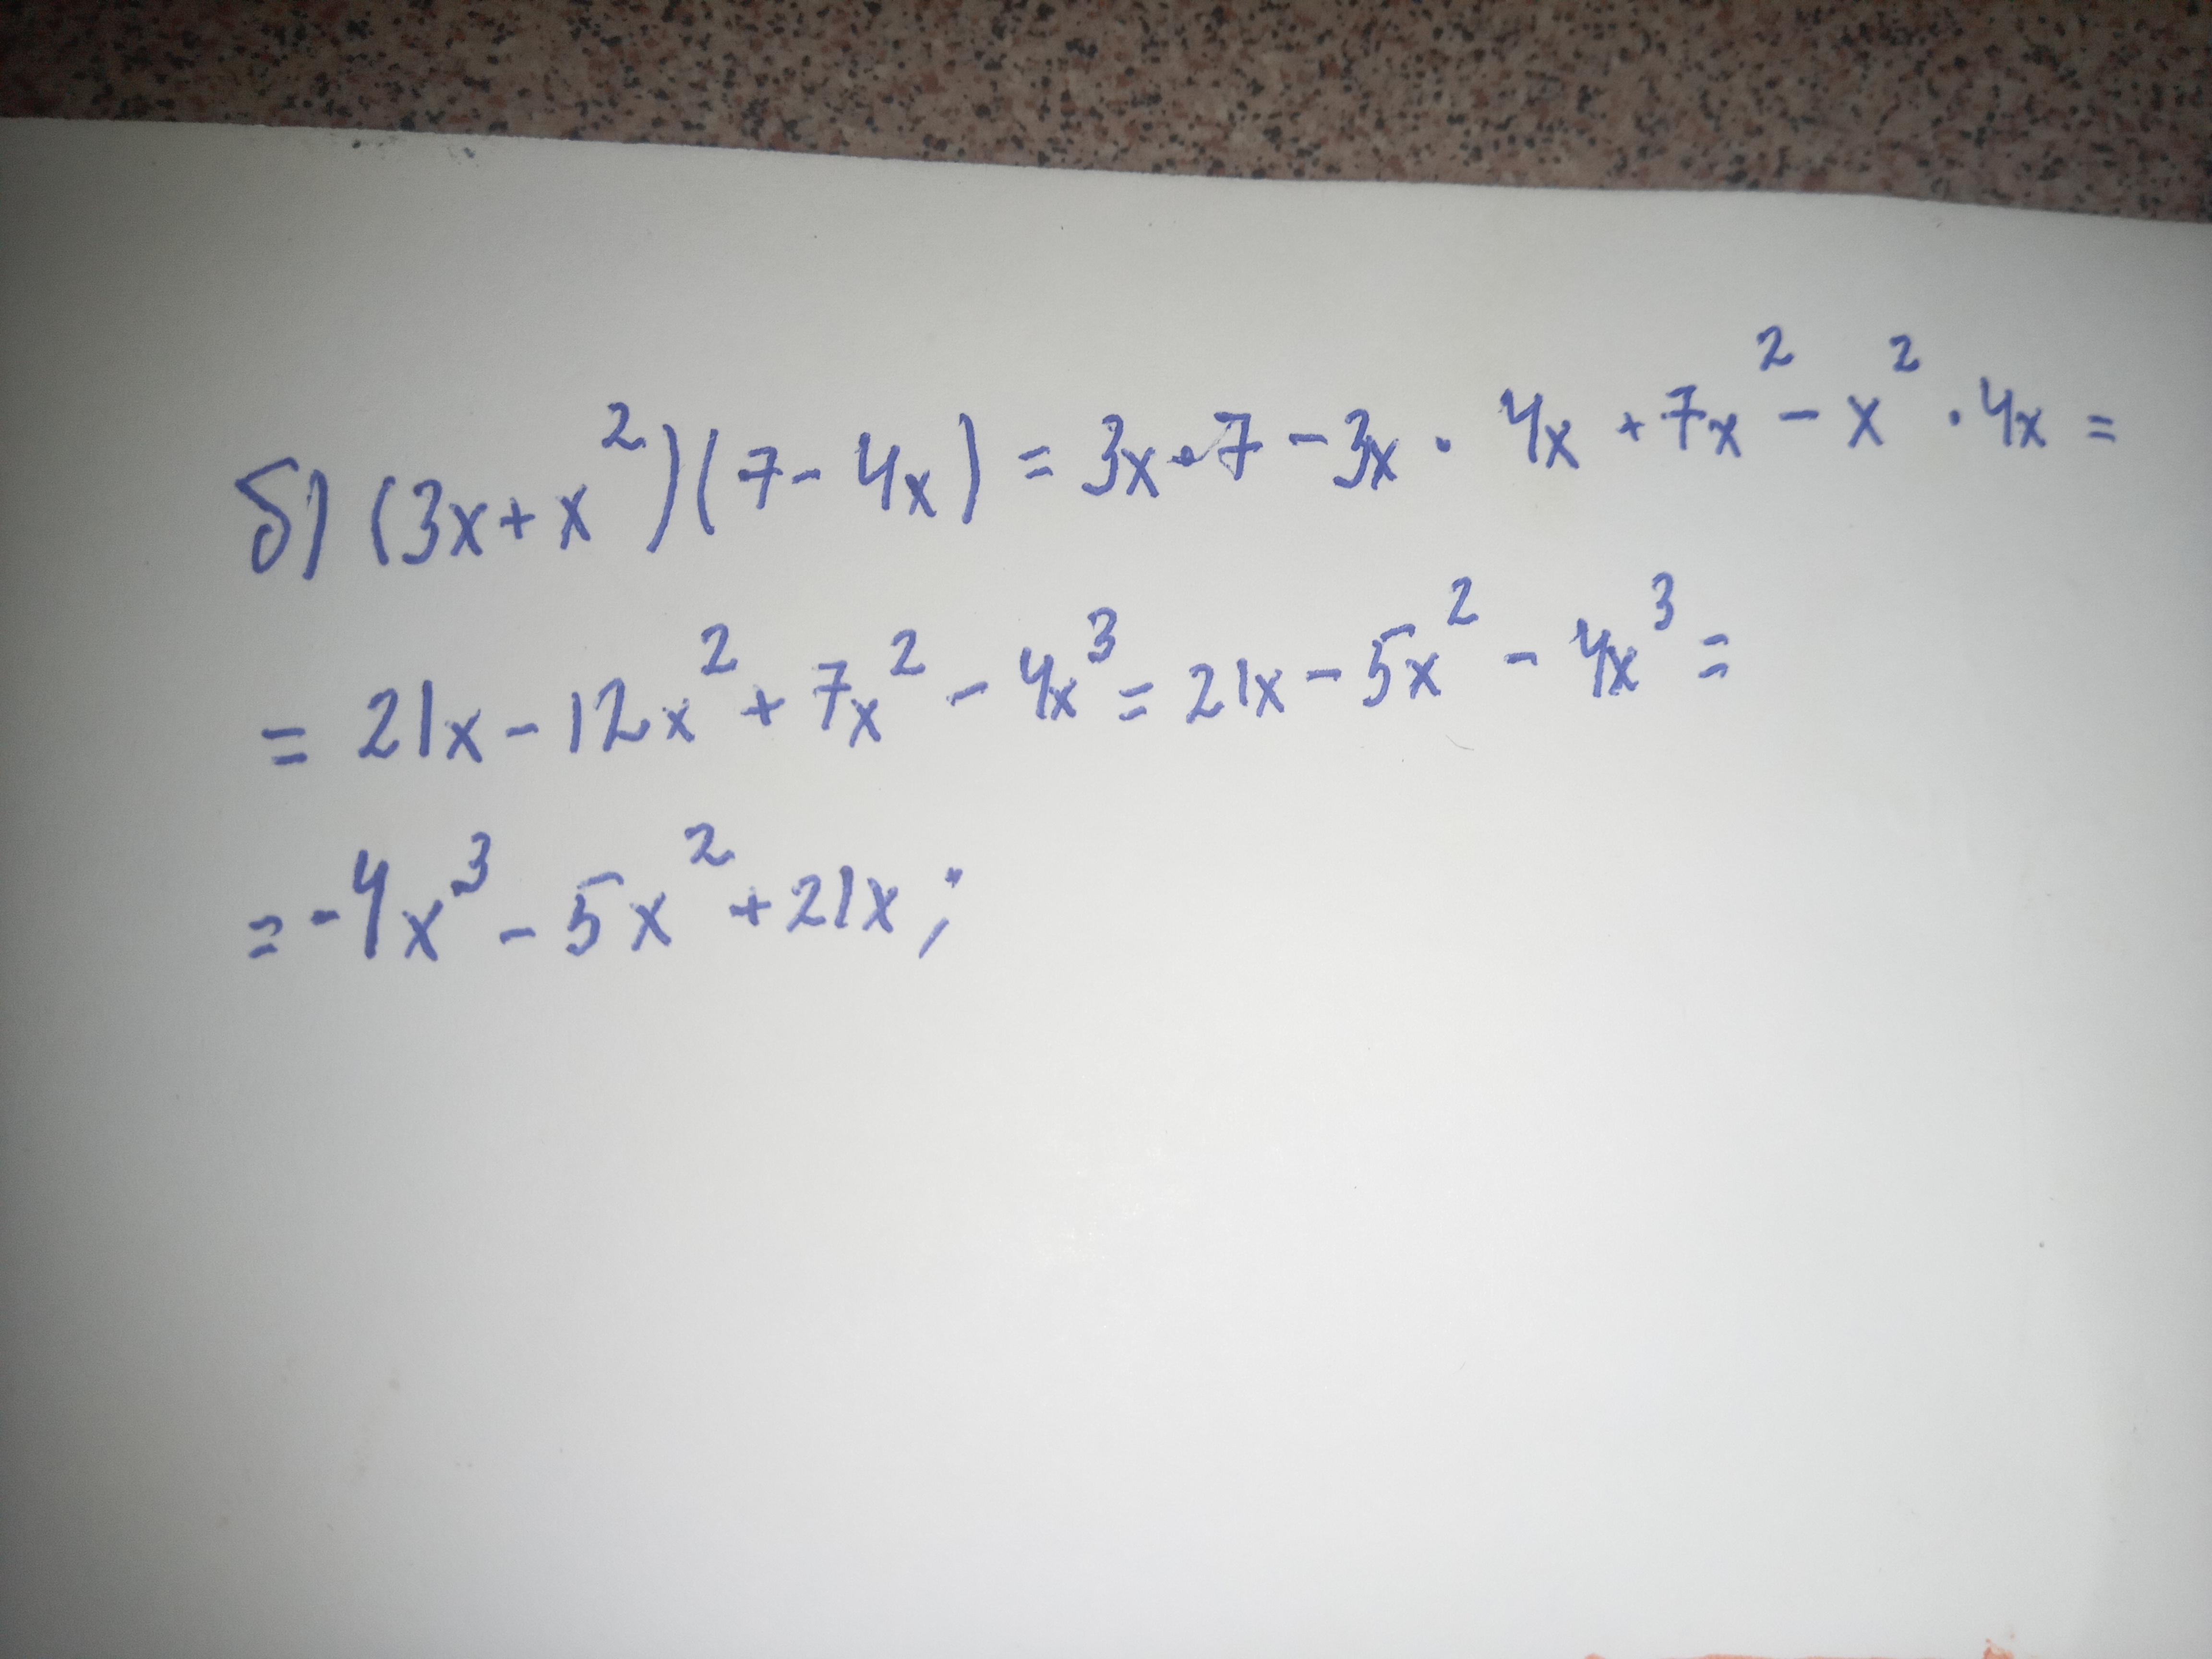 б) (3x+x²)(7-4x) = 3x·7-3x·4x+7x²-x²·4x=
= 21x-12x²+7x²-4x³=21x-5x²-4x³=
=-4x³-5x²+21x;